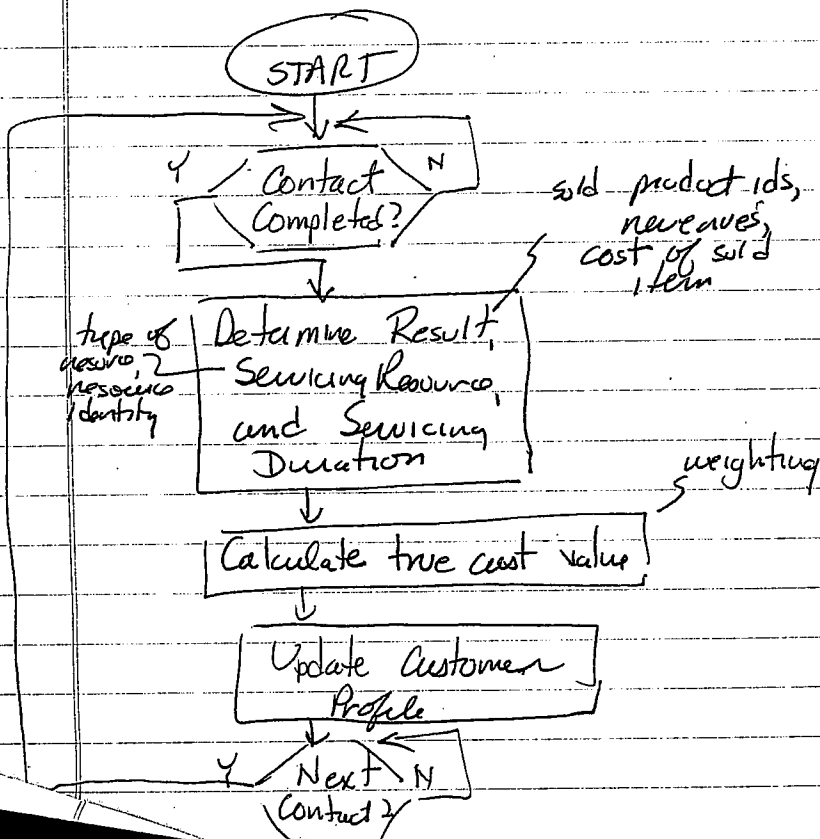 START
Y
Contact
N
Completed?
sold product ids,
revenues,
cost of sold
item
type of
resource,
resource
identity
Determine Result,
Servicing Resource,
and Servicing
Duration
weighting
Calculate true cost value
Update Customer
Profile
Y
Next
N
Contact?